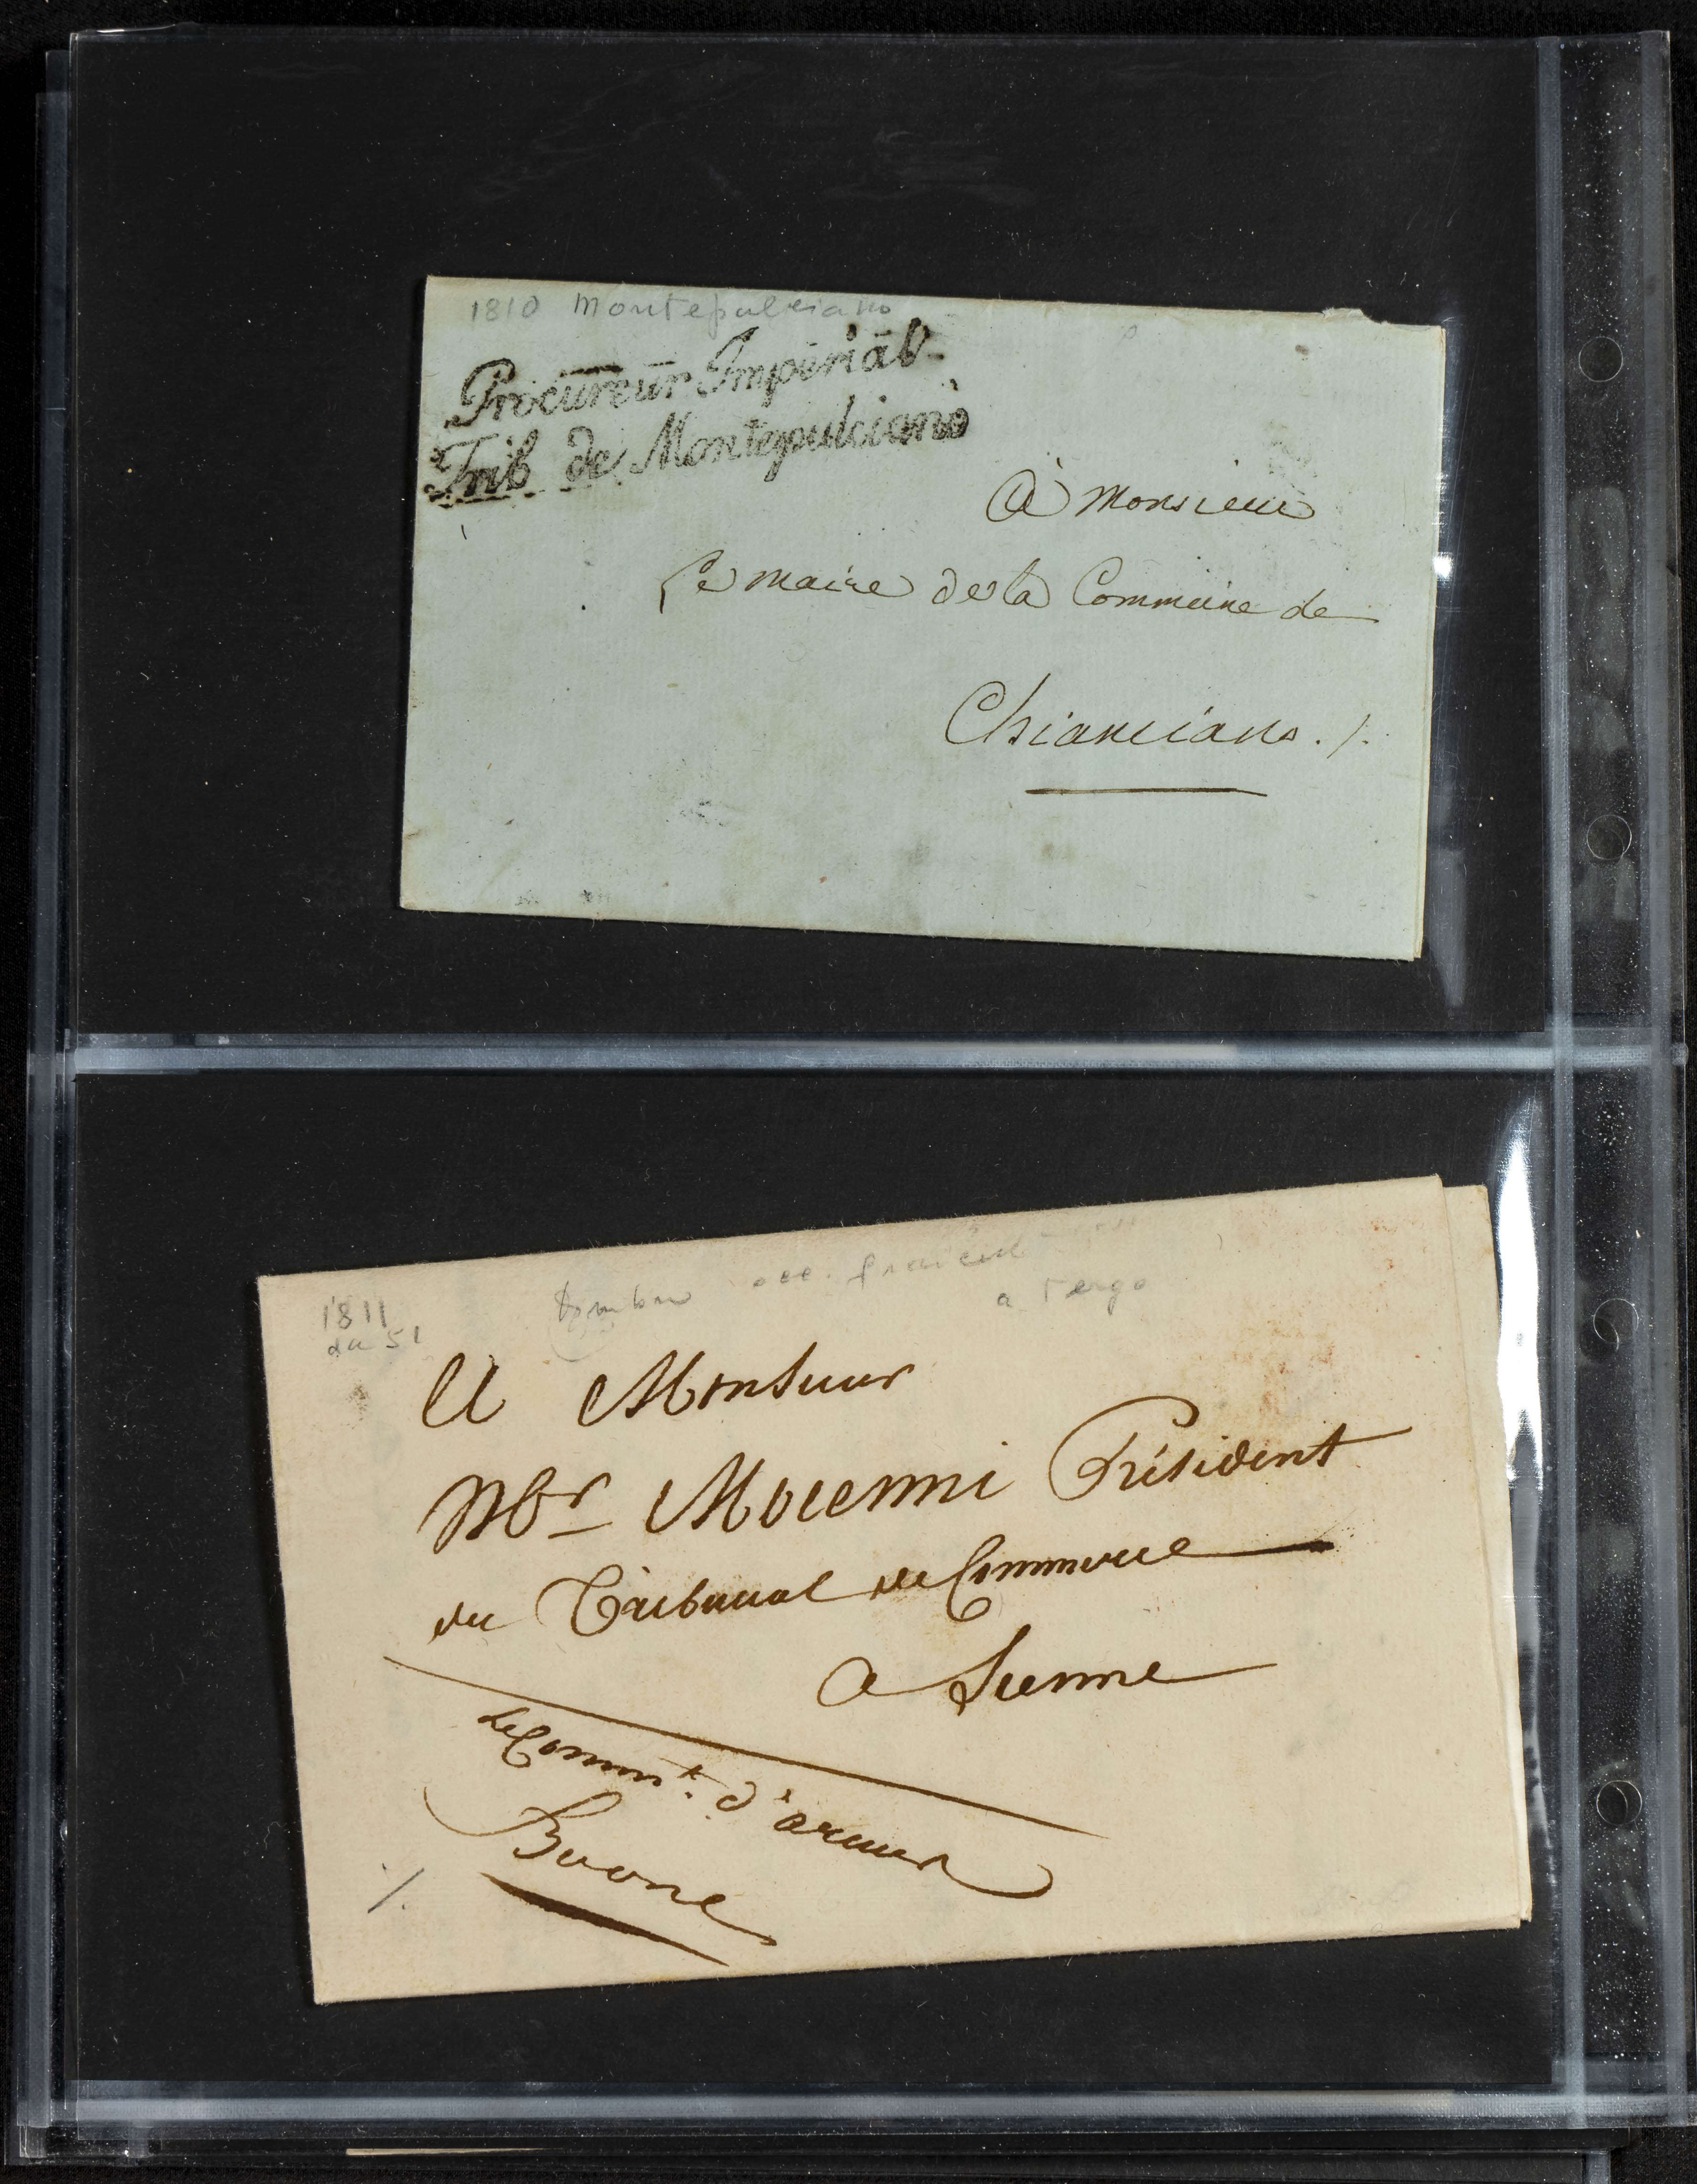 1810 Montepulciano
Procureur Impérial
Trib de Montepulciano
A Monsieur
Le Maire de la Commune de
Chianciano ./.
1811
da 51
a tergo
A Monsieur
Mr Mocenni Président
du Tribunal de Commerce
a Sienne
Le Commt. d'armes